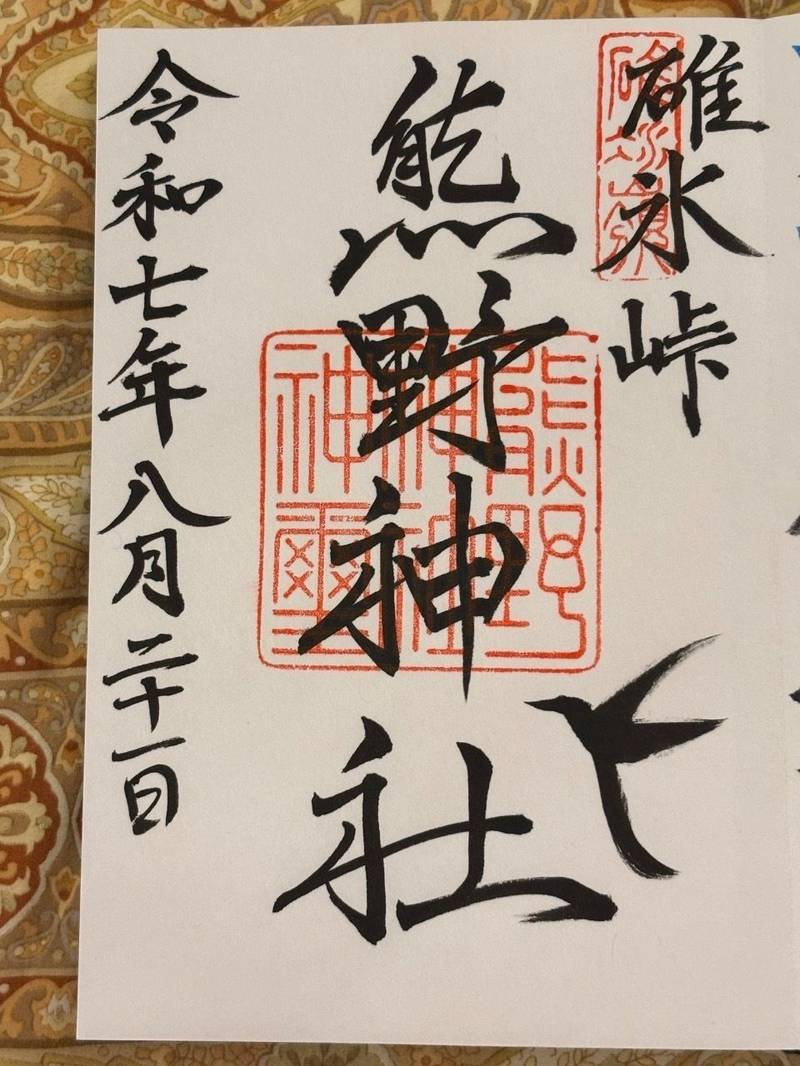 碓氷峠
熊野神社
令和七年八月二十一日
碓氷嶺
熊野
神社
神璽